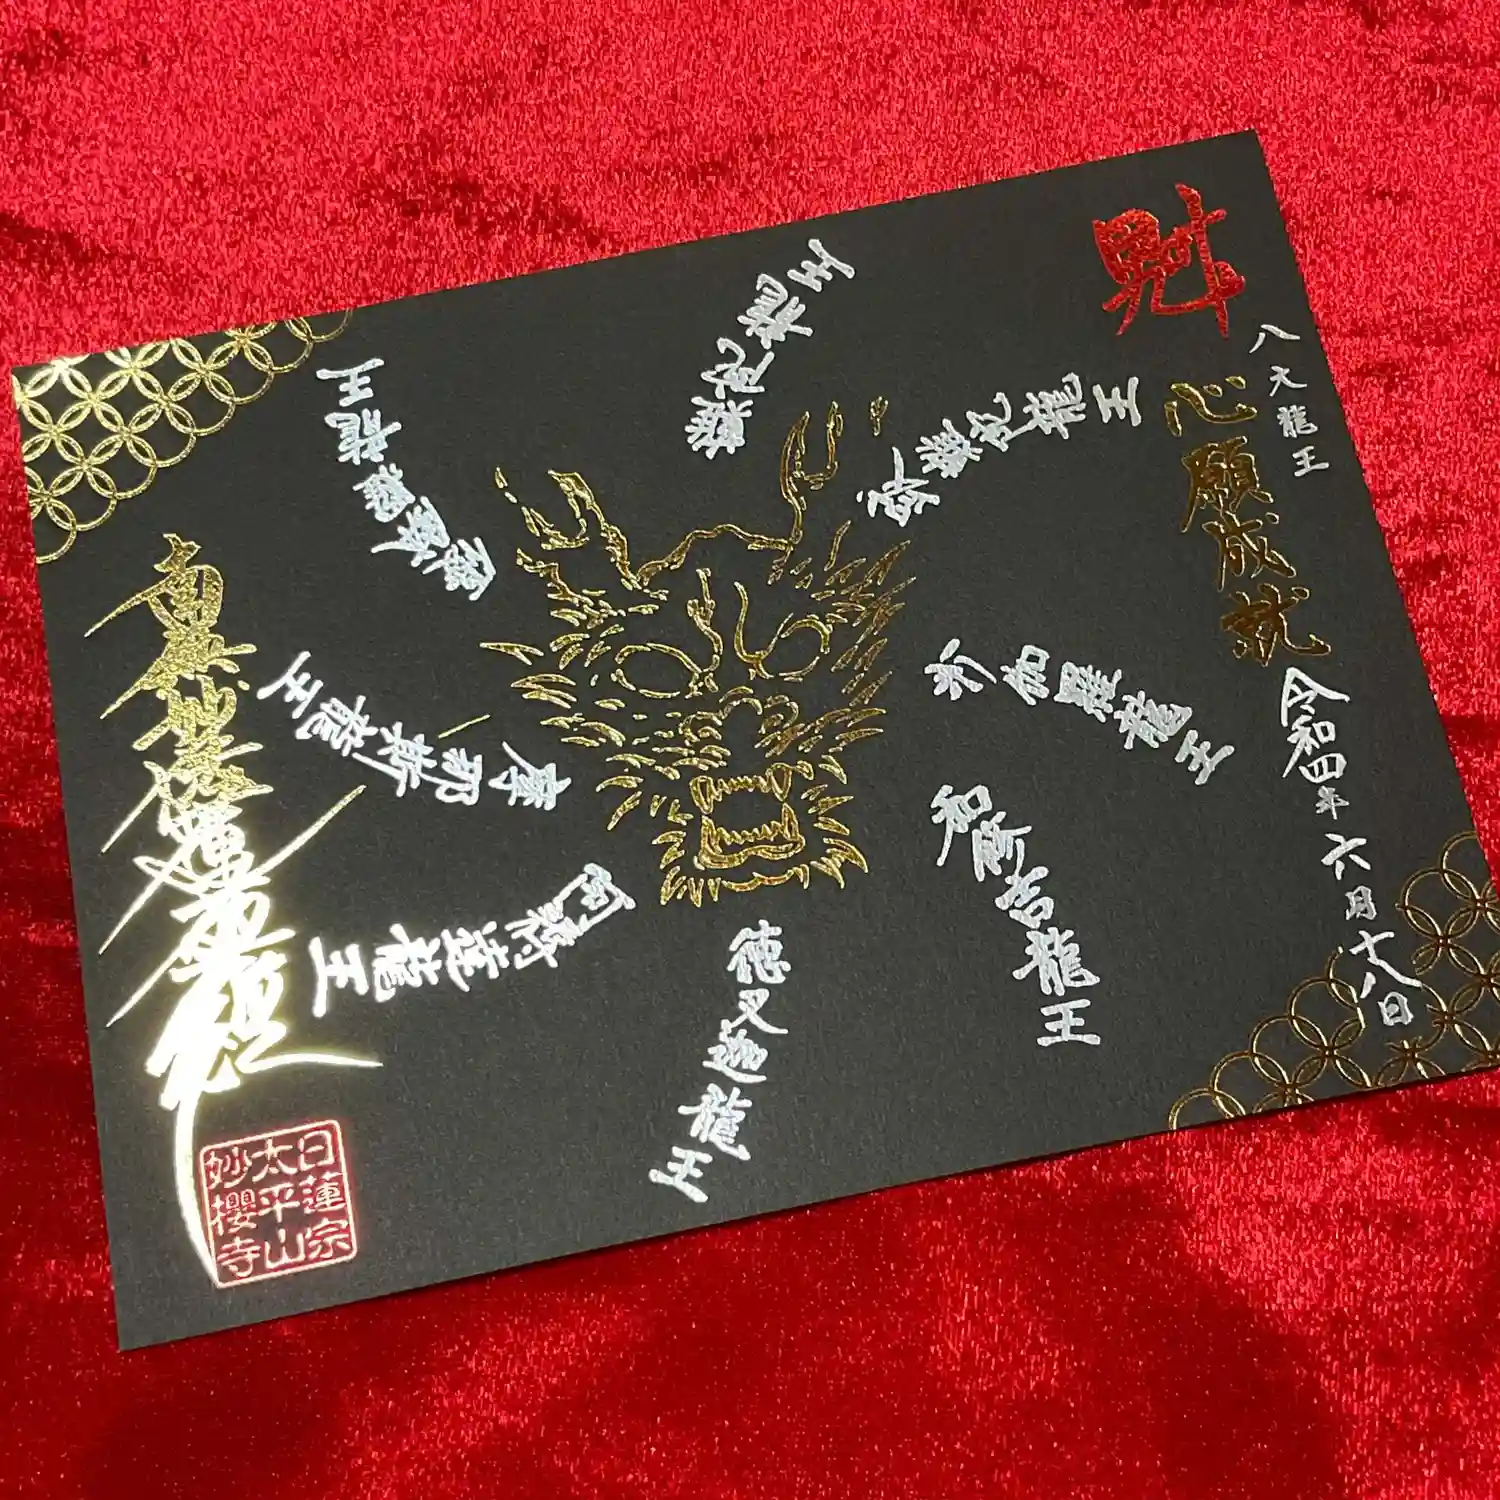 財
八大龍王
心願成就
令和四年六月十八日
難陀龍王
跋難陀龍王
沙伽羅龍王
和修吉龍王
徳叉迦龍王
阿耨達龍王
摩那斯龍王
南無妙法蓮華経
日蓮宗
太平山
妙櫻寺